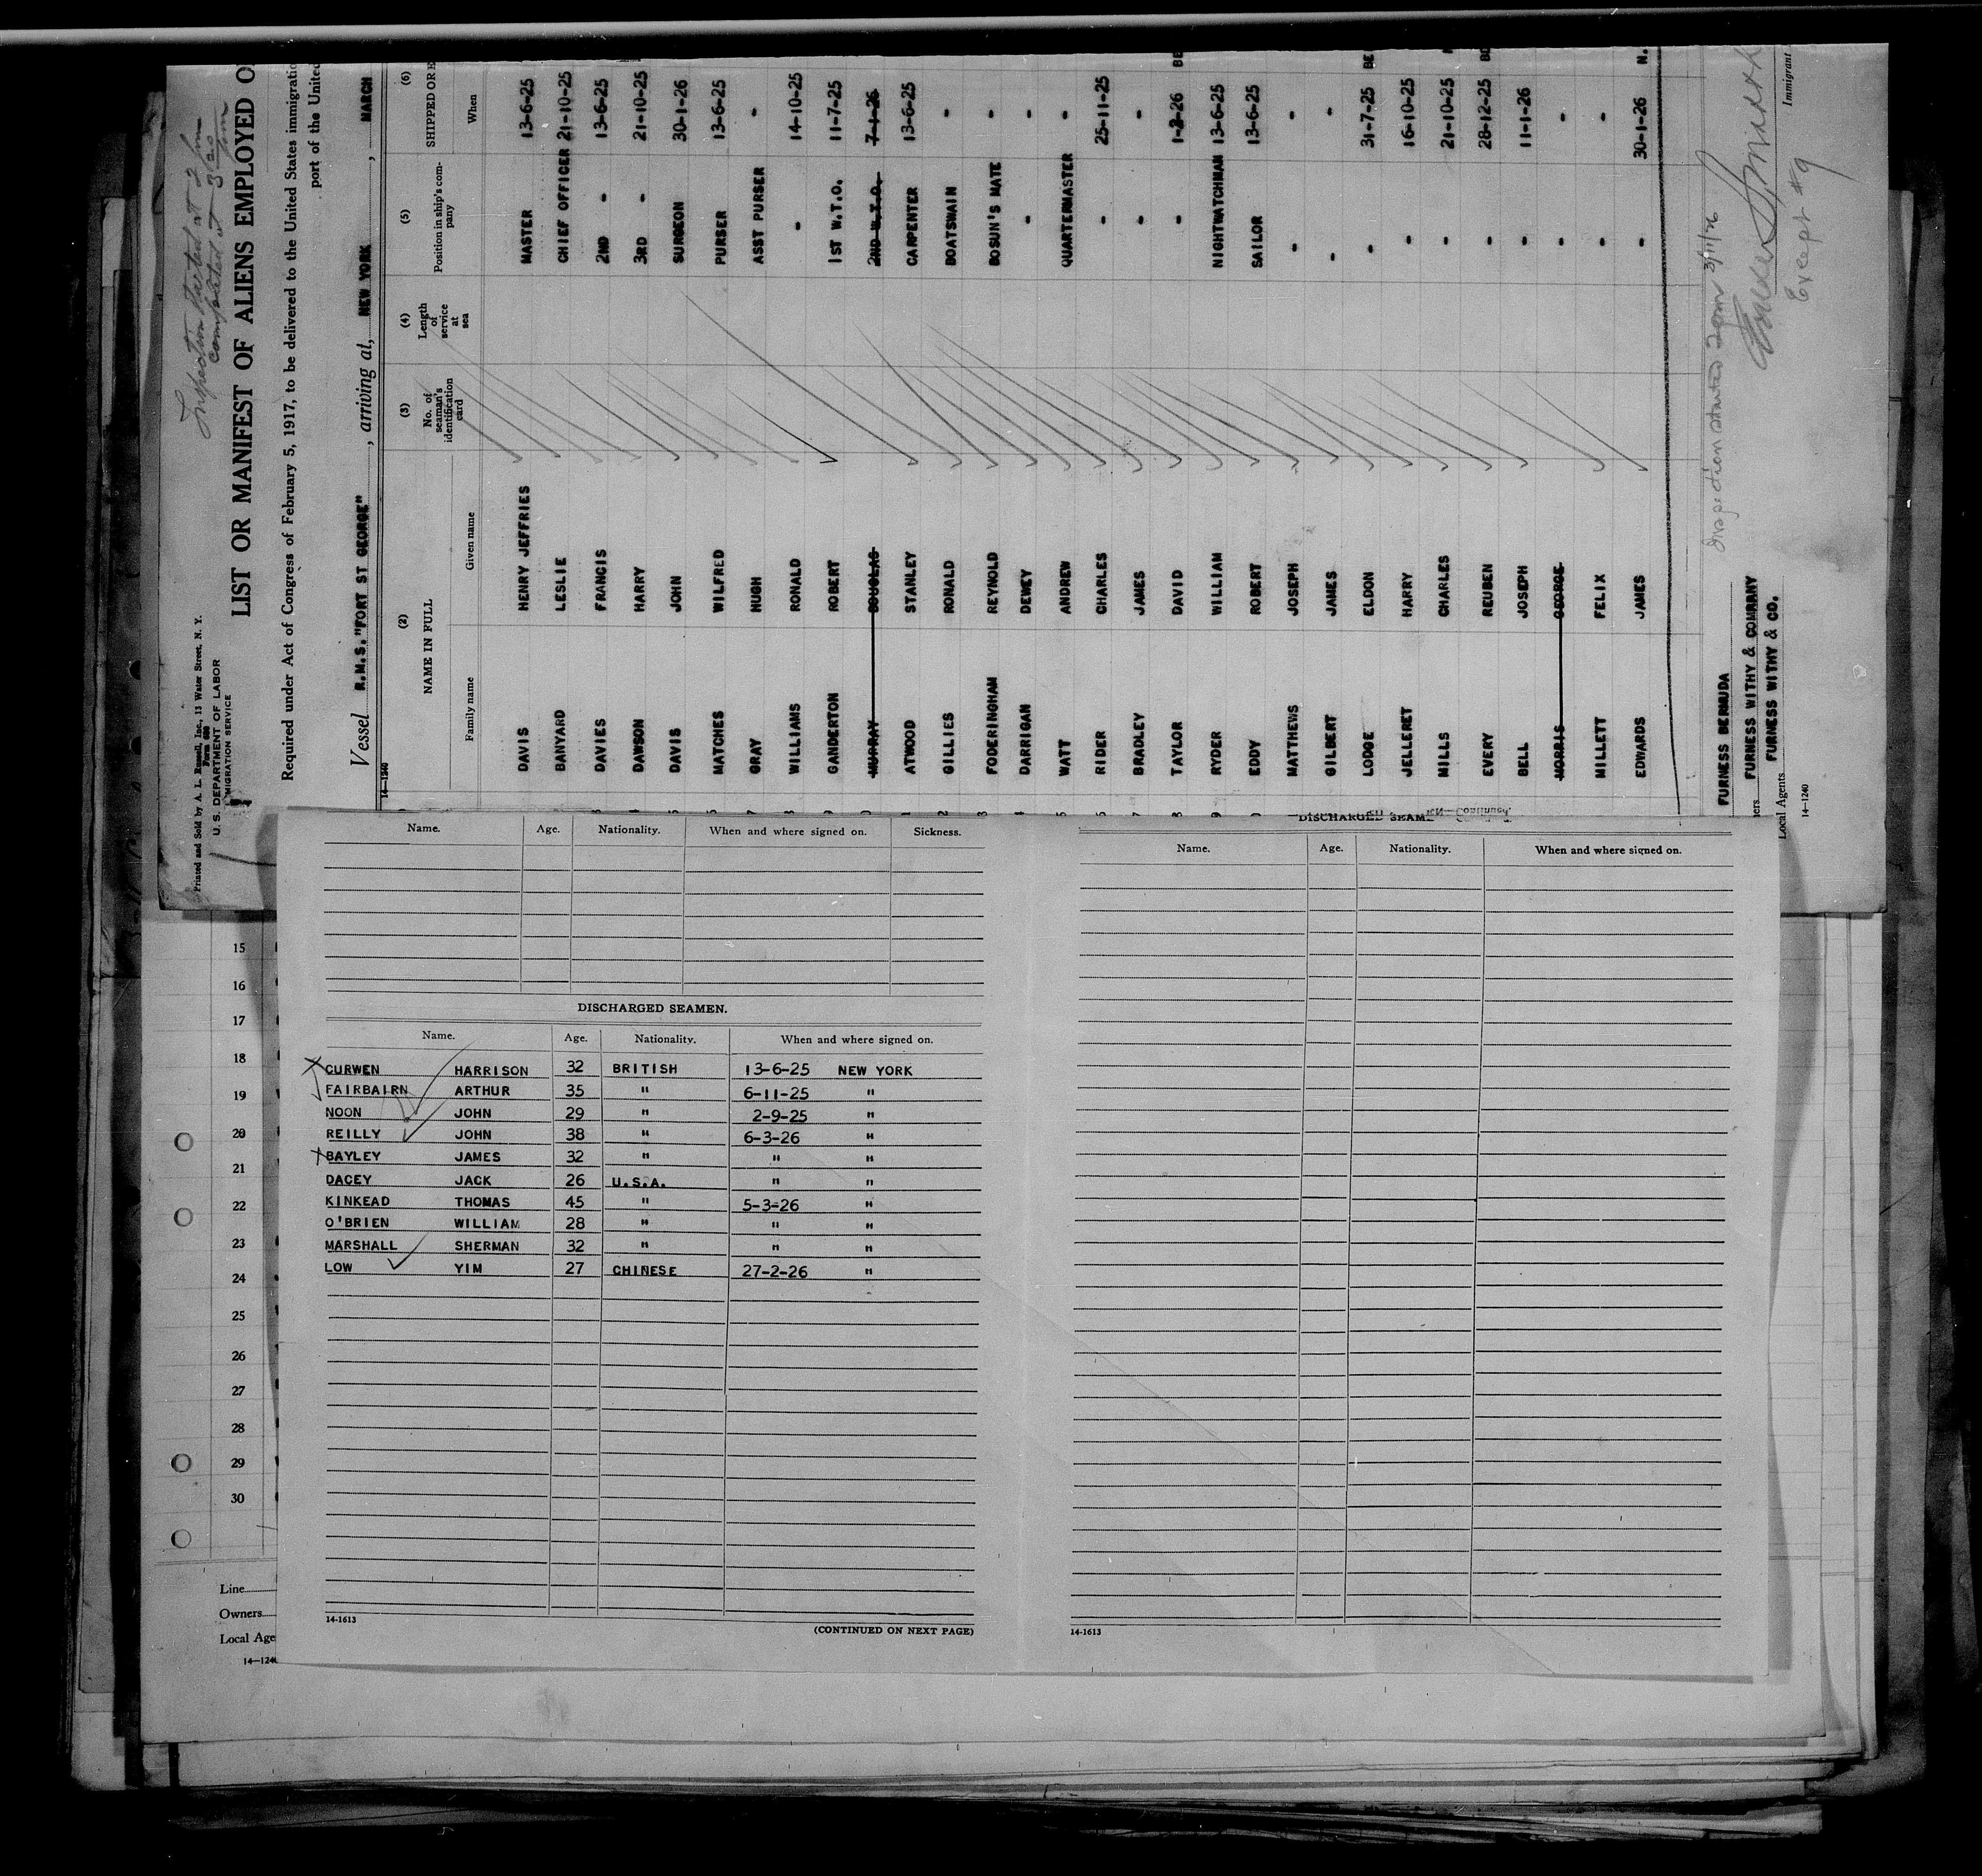 Inspection started at 2 pm
completed at 3:20 pm
Printed and Sold by A. L. Russell, Inc., 13 Water Street, N. Y.
Form 680
U. S. DEPARTMENT OF LABOR
IMMIGRATION SERVICE
LIST OR MANIFEST OF ALIENS EMPLOYED O
Required under Act of Congress of February 5, 1917, to be delivered to the United States immigratio
port of the United
Vessel R.M.S. "FORT ST GEORGE", arriving at, NEW YORK, MARCH
14—1240
(2) (3) (4) (5) (6)
NAME IN FULL No. of seaman's identification card Length of service at sea Position in ship's company SHIPPED OR E
Family name Given name When
DAVIS HENRY JEFFRIES MASTER 13-6-25
BANYARD LESLIE CHIEF OFFICER 21-10-25
DAVIES FRANCIS 2ND - 13-6-25
DAWSON HARRY 3RD - 21-10-25
DAVIS JOHN SURGEON 30-1-26
MATCHES WILFRED PURSER 13-6-25
GRAY HUGH ASST PURSER -
WILLIAMS RONALD - 14-10-25
GANDERTON ROBERT 1ST W.T.O. 11-7-25
MURRAY DOUGLAS 2ND W.T.O. 7-1-26
ATWOOD STANLEY CARPENTER 13-6-25
GILLIES RONALD BOATSWAIN -
FODERINGHAM REYNOLD BOSUN'S MATE -
DARRIGAN DEWEY - -
WATT ANDREW QUARTERMASTER -
RIDER CHARLES - 25-11-25
BRADLEY JAMES - -
TAYLOR DAVID - 1-2-26 BE
RYDER WILLIAM NIGHTWATCHMAN 13-6-25
EDDY ROBERT SAILOR 13-6-25
MATTHEWS JOSEPH - -
GILBERT JAMES - -
LODGE ELDON - 31-7-25 BE
JELLERET HARRY - 16-10-25
MILLS CHARLES - 21-10-25
EVERY REUBEN - 28-12-25
BELL JOSEPH - 11-1-26
MORRIS GEORGE - -
MILLETT FELIX - -
EDWARDS JAMES - 30-1-26 N.
Inspection started 2 pm 3/11/26
Except #9
Immigrant
FURNESS BERMUDA
ners FURNESS WITHY & COMPANY
Local Agents FURNESS WITHY & CO.
14—1240
Name. Age. Nationality. When and where signed on. Sickness.
DISCHARGED SEAMEN.
Name. Age. Nationality. When and where signed on.
CURWEN HARRISON 32 BRITISH 13-6-25 NEW YORK
FAIRBAIRN ARTHUR 35 " 6-11-25 "
NOON JOHN 29 " 2-9-25 "
REILLY JOHN 38 " 6-3-26 "
BAYLEY JAMES 32 " " "
DACEY JACK 26 U.S.A. " "
KINKEAD THOMAS 45 " 5-3-26 "
O'BRIEN WILLIAM 28 " " "
MARSHALL SHERMAN 32 " " "
LOW YIM 27 CHINESE 27-2-26 "
14-1613
(CONTINUED ON NEXT PAGE)
DISCHARGED SEAME
Name. Age. Nationality. When and where signed on.
14-1613
15
16
17
18
19
20
21
22
23
24
25
26
27
28
29
30
Line
Owners
Local Age
14—124